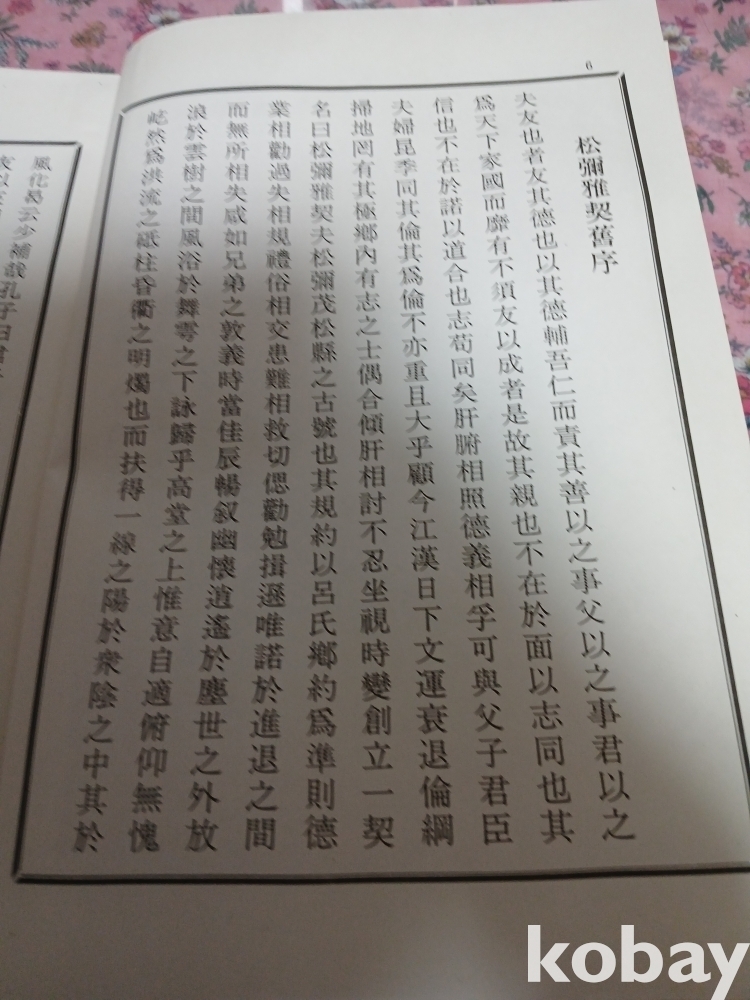 6
松彌雅契舊序
夫友也者友其德也以其德輔吾仁而責其善以之事父以之事君以之
爲天下家國而靡有不須友以成者是故其親也不在於面以志同也其
信也不在於諾以道合也志苟同矣肝腑相照德義相孚可與父子君臣
夫婦昆季同其倫其爲倫不亦重且大乎顧今江漢日下文運衰退倫綱
掃地罔有其極鄉內有志之士偶合傾肝相討不忍坐視時變創立一契
名曰松彌雅契夫松彌茂松縣之古號也其規約以呂氏鄉約爲準則德
業相勸過失相規禮俗相交患難相救切偲勸勉揖遜唯諾於進退之間
而無所相失咸如兄弟之敦義時當佳辰暢叙幽懷逍遙於塵世之外放
浪於雲樹之間風俗於舞雩之下詠歸乎高堂之上惟意自適俯仰無愧
屹然爲洪流之砥柱昏衢之明燭也而扶得一線之陽於衆陰之中其於
風化曷云少補哉孔子曰君子
友以
kobay